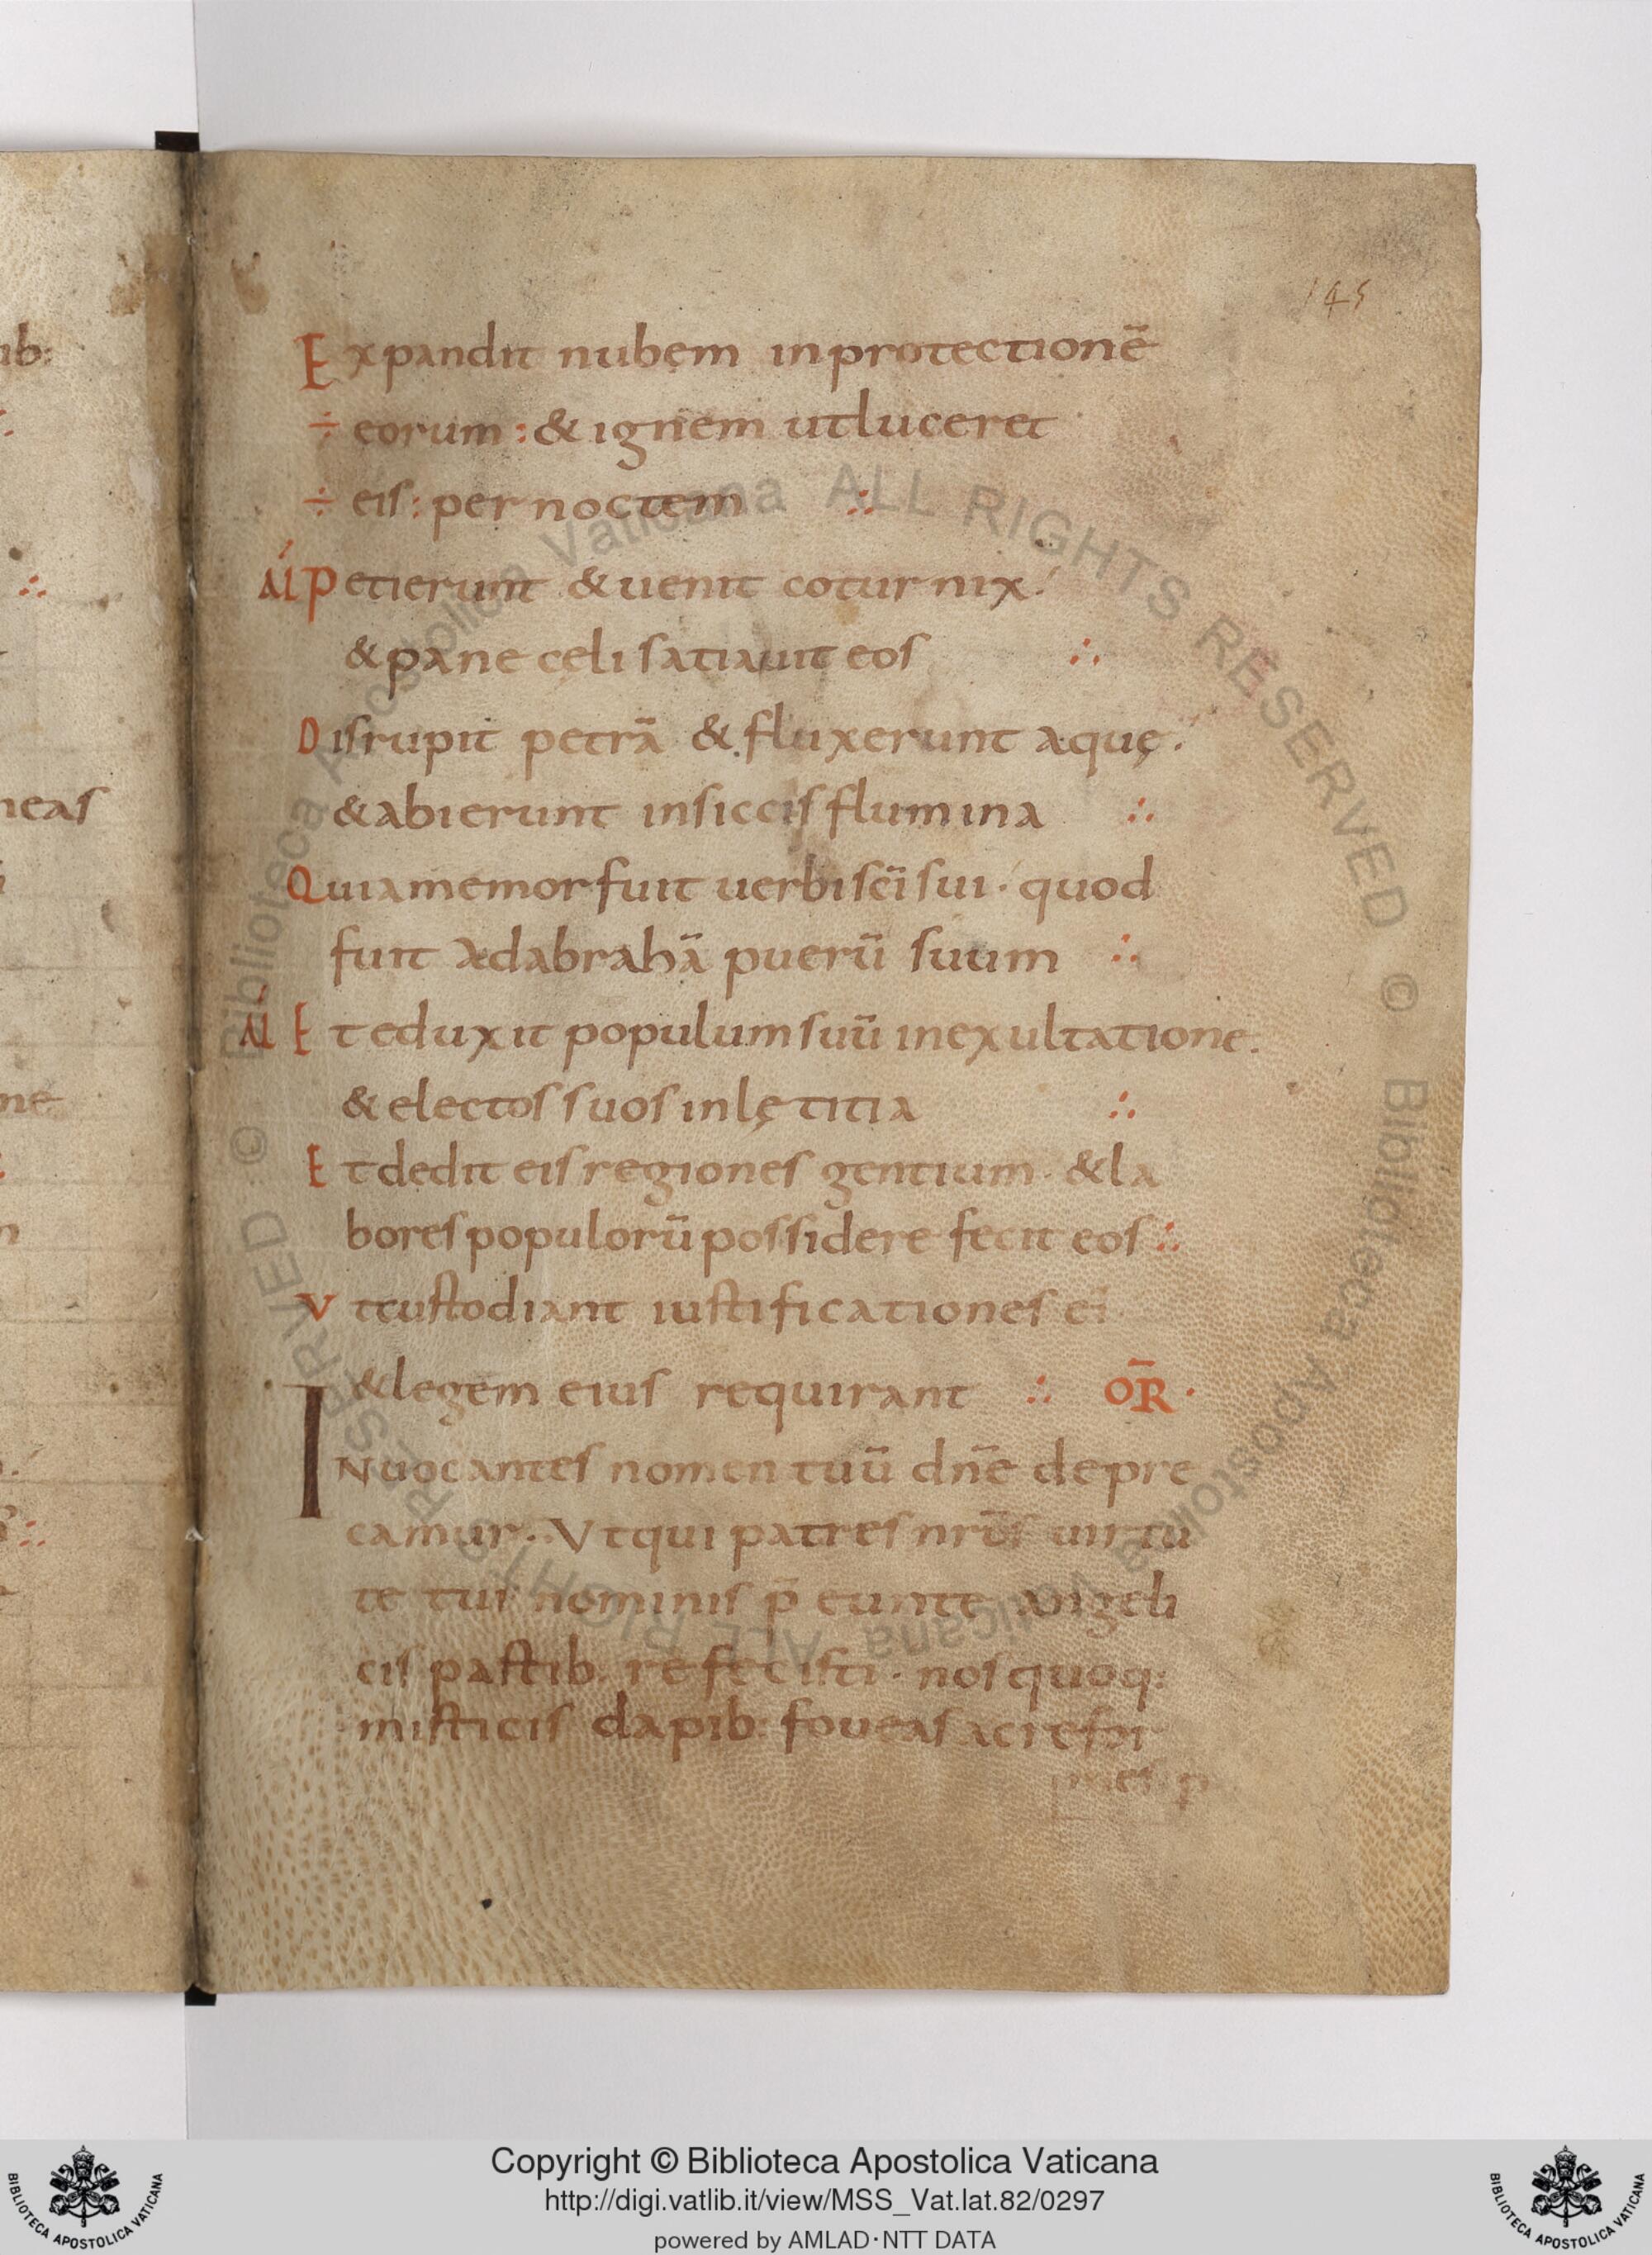 145
Expandit nubem inprotectionē
÷ eorum : & ignem utluceret
÷ eis : per noctem ∴
AL Petierunt & uenit coturnix.
& pane celi satiauit eos ∴
Disrupit petrā & fluxerunt aquę.
& abierunt insiccis flumina ∴
Quiamemorfuit uerbi scī sui · quod
fuit adabrahā puerū suum ∴
AL Et eduxit populum suū inexultatione.
& electos suos inlętitia ∴
Et dedit eis regiones gentium · & la
bores populorū possidere fecit eos ∴
Vt custodiant iustificationes ei
& legem eius requirant ∴ OR̄ ·
INuocantes nomen tuū dnē depre
camur · Vtqui patres nrōs uirtu
te tui nominis p̄ eunte angeli
cis pastib: refecisti · nos quoq:
misticis dapib: foueas ac refor
ib:
neas
ne
Copyright © Biblioteca Apostolica Vaticana
http://digi.vatlib.it/view/MSS_Vat.lat.82/0297
powered by AMLAD·NTT DATA
BIBLIOTECA APOSTOLICA VATICANA
BIBLIOTECA APOSTOLICA VATICANA
© Biblioteca Apostolica Vaticana ALL RIGHTS RESERVED
© Biblioteca Apostolica Vaticana ALL RIGHTS RESERVED